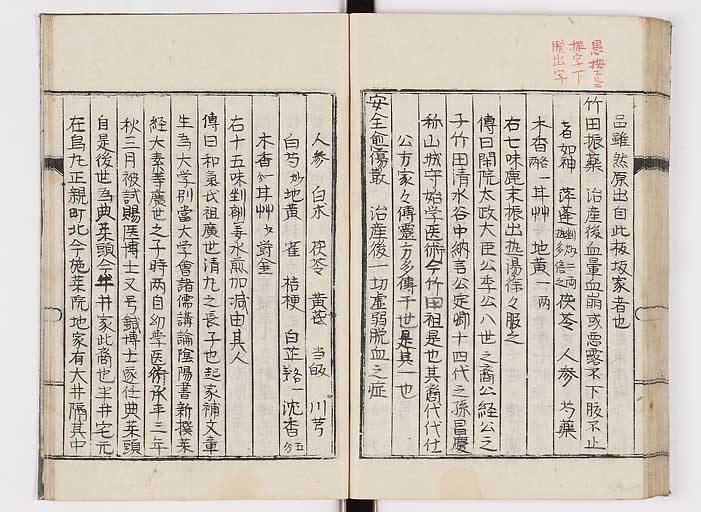 愚按
振字下
脱出字
品雖然原出自此板坂家者也
竹田振藥 治産後血暈血崩或惡露不下腹不止
者如神 茯苓 人参 芍藥
木香 一耳艸 地黄一両
右七味麁末振出熱湯徐々服之
傳曰閑院太政大臣公季公八世之裔公経公之
子竹田清水谷中納言公定卿十四代之孫昌慶
称山城守始学医術今竹田祖是也其裔代代仕
公方家々傳靈方多傳于世是其一也
安全愈傷散 治産後一切虚弱脱血之症
人参 白朮 茯苓 黄芪 当皈 川芎
白芍 地黄 桔梗 白芷 沈香五分
木香 耳艸 欝金
右十五味剉剤姜水煎加減由其人
傳曰和氣氏祖廣世清丸之長子也起家補文章
生為大学別當大学會諸儒講論陰陽書新撰薬
経大素等廣世之子時両自幼学医術承平三年
秋三月被試賜医博士又号鍼博士遂任典薬頭
自是後世為典薬頭今半井家此裔也半井宅元
在烏丸正親町北今施薬院地家有大井隔其中